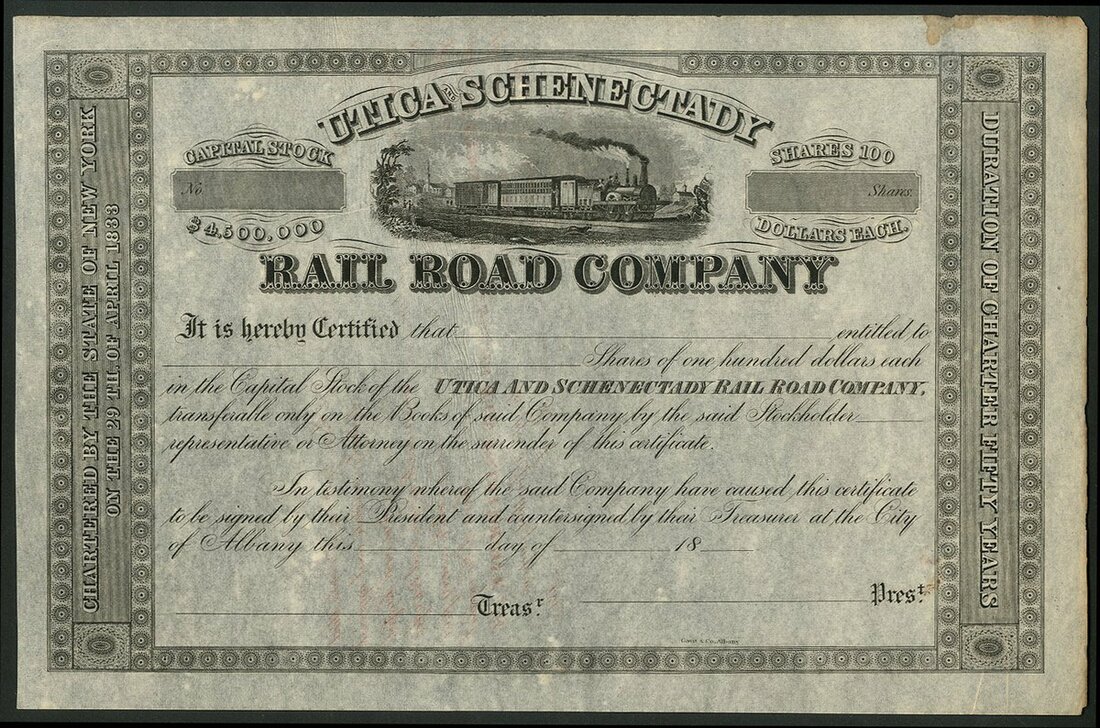 UTICA AND SCHENECTADY
CAPITAL STOCK
No
$4,500,000
SHARES 100
Shares.
DOLLARS EACH.
RAIL ROAD COMPANY
CHARTERED BY THE STATE OF NEW YORK
ON THE 29TH. OF APRIL 1833
DURATION OF CHARTER FIFTY YEARS
It is hereby Certified that entitled to
Shares of one hundred dollars each
in the Capital Stock of the UTICA AND SCHENECTADY RAIL ROAD COMPANY,
transferable only on the Books of said Company by the said Stockholder
representative or Attorney on the surrender of this certificate.
In testimony whereof the said Company have caused this certificate
to be signed by their President and countersigned by their Treasurer at the City
of Albany this day of 18
Treasr.
Prest.
Gavit & Co. Albany